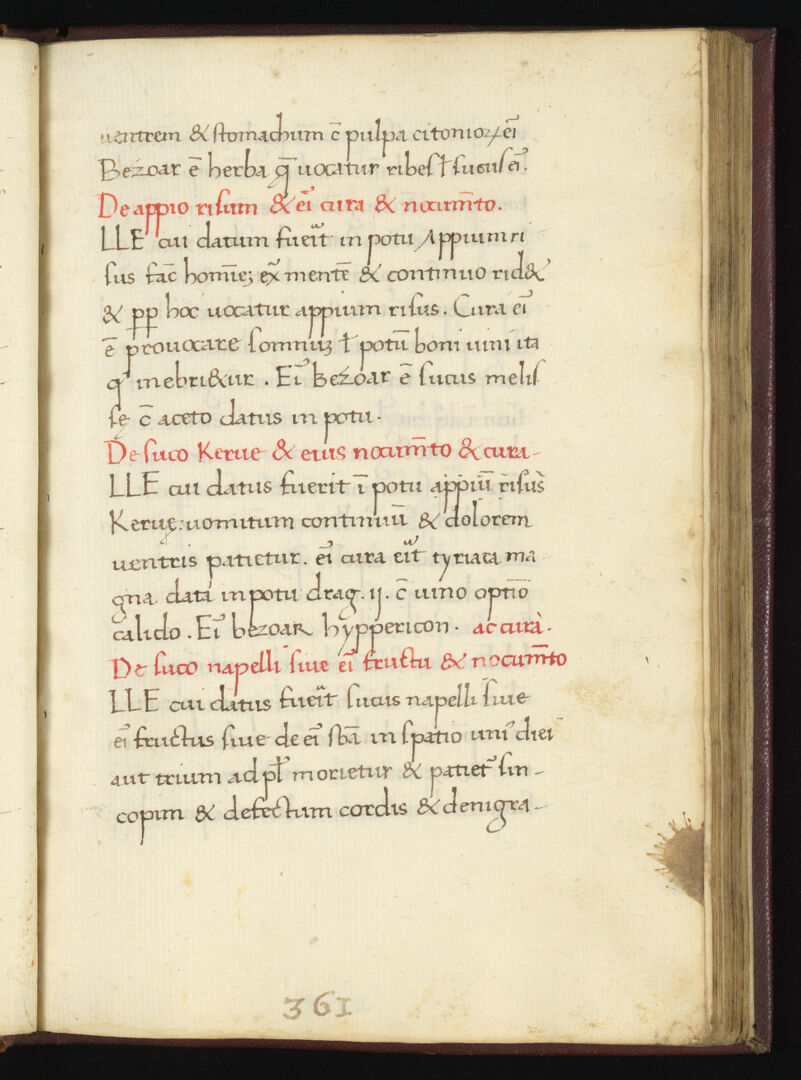 uentrem & stomachum c̄ pulpa citonioꝝ eı᾽
Bezoar ē herba q̄ uocatur ribes ł sucus eı᾽.
De appio risum & eı᾽ cura & nocum̄to.
LLE cui datum fueit in potu Appium ri
sus fac̄ hoīeꝫ ex̄ mentē & continuo rid&
& ꝓꝑ hoc uocatur appium risus. Cura eı᾽
ē prouocare somnuꝫ ł potū boni uini ita
ꝙ inebri&ur . Eı᾽ Bezoar ē sucus melis
se c̄ aceto datus in potu.
De suco Kerue & eius nocum̄to & cura-
LLE cui datus fuerit ī potu appiū risus
Kerue: uomitum continuū & dolorem
uentris patietur. eı᾽ cura eit tyriaca ma
gna data in potu drag. ij. c̄ uino optīo
calido . Eı᾽ bezoar hyppericon. ac cura.
De suco napelli siue eı᾽ fructu & nocum̄to
LLE cui datus fueit sucus napelli siue
eı᾽ fructus siue de eı᾽ sbā in spatio uni᾽ diei
aut trium ad pl᾽ morietur & patiet᾽ sin-
copim & defectum cordis & denigra-
361